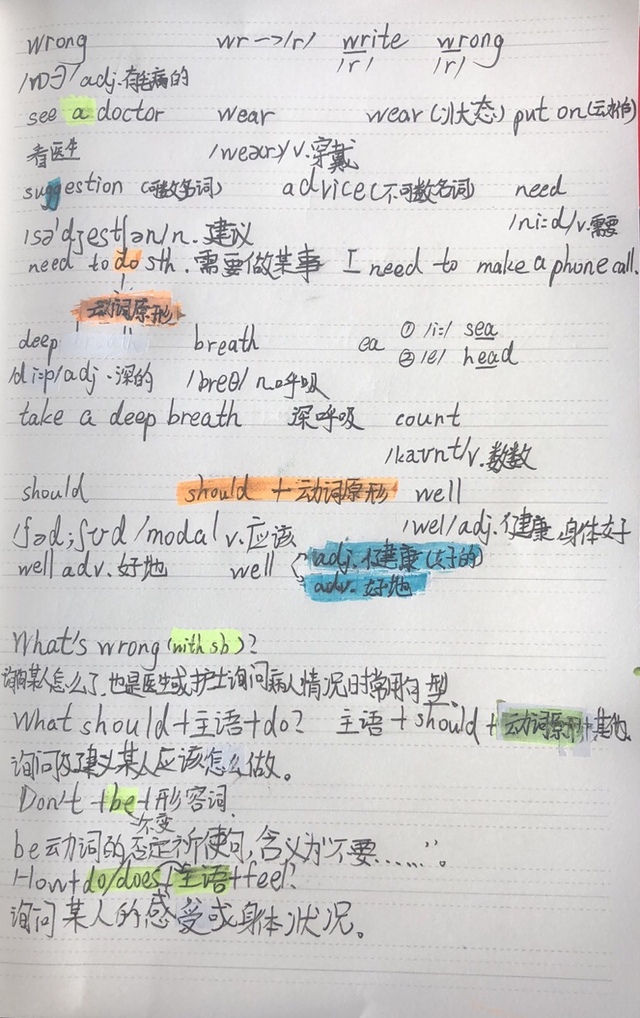 wrong wr→/r/ write wrong
/rɒŋ/ adj.有毛病的 /r/ /r/
see a doctor wear wear(状态) put on(动作)
看医生 /weə(r)/ v.穿戴
suggestion (可数名词) advice(不可数名词) need
/sə'dʒestʃən/ n.建议 /ni:d/ v.需要
need to do sth.需要做某事 I need to make a phone call.
动词原形
deep breath ea ① /i:/ sea
② /e/ head
/di:p/ adj.深的 /breθ/ n.呼吸
take a deep breath 深呼吸 count
/kaʊnt/ v.数数
should should + 动词原形 well
/ʃəd;ʃʊd/ modal v.应该 /wel/ adj.健康,身体好
well adv.好地 well adj.健康(好的)
adv.好地
What's wrong (with sb)?
询问某人怎么了,也是医生或护士询问病人情况时常用句型
What should+主语+do? 主语+should+动词原形+其他.
询问及建议某人应该怎么做。
Don't+be+形容词.
不变
be动词的否定祈使句,含义为"不要……"。
How+do/does+主语+feel?
询问某人的感受或身体状况。